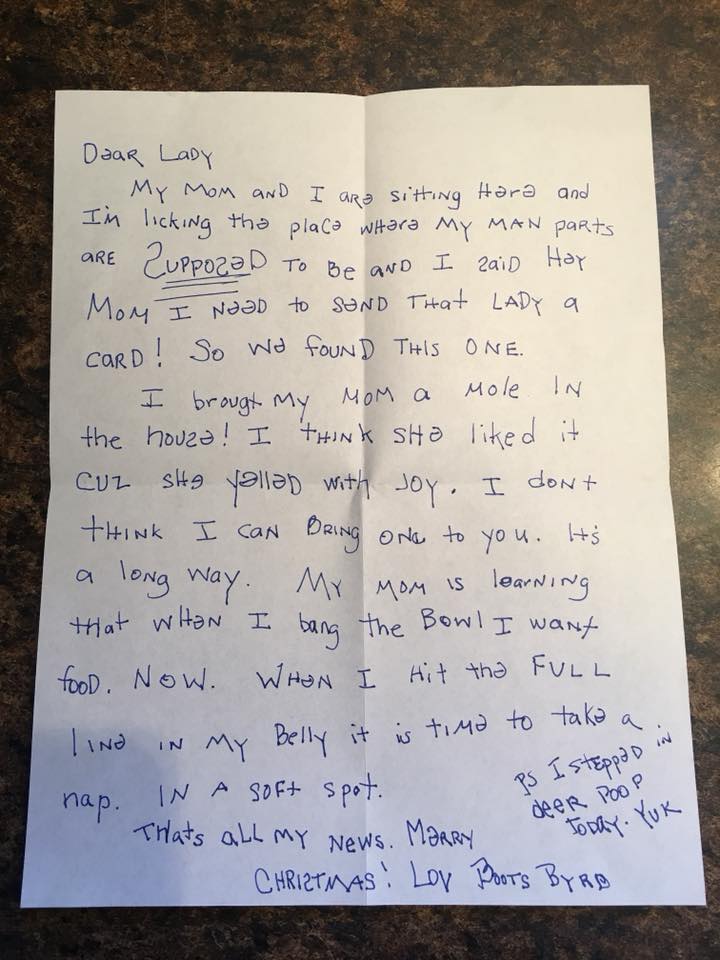 Dear Lady
My Mom and I are sitting Here and
I'm licking the place where My MAN parts
are SUPPOSED TO Be and I said Hey
Mom I Need to send THAT LADY a
CARD! So we found THIS ONE.
I brougt My Mom a Mole IN
the house! I THINK she liked it
CUZ she yelled with JOY. I dont
THINK I CAN BRING one to you. It's
a long way. My Mom is learning
that when I bang the Bowl I want
food. NOW. WHen I Hit the FULL
line in my Belly it is time to take a
nap. IN A SOFt spot.
THats all my News. Merry
CHRISTMAS! Lov Boots Byrd
PS I stepped in
deer POOP
today. YUK